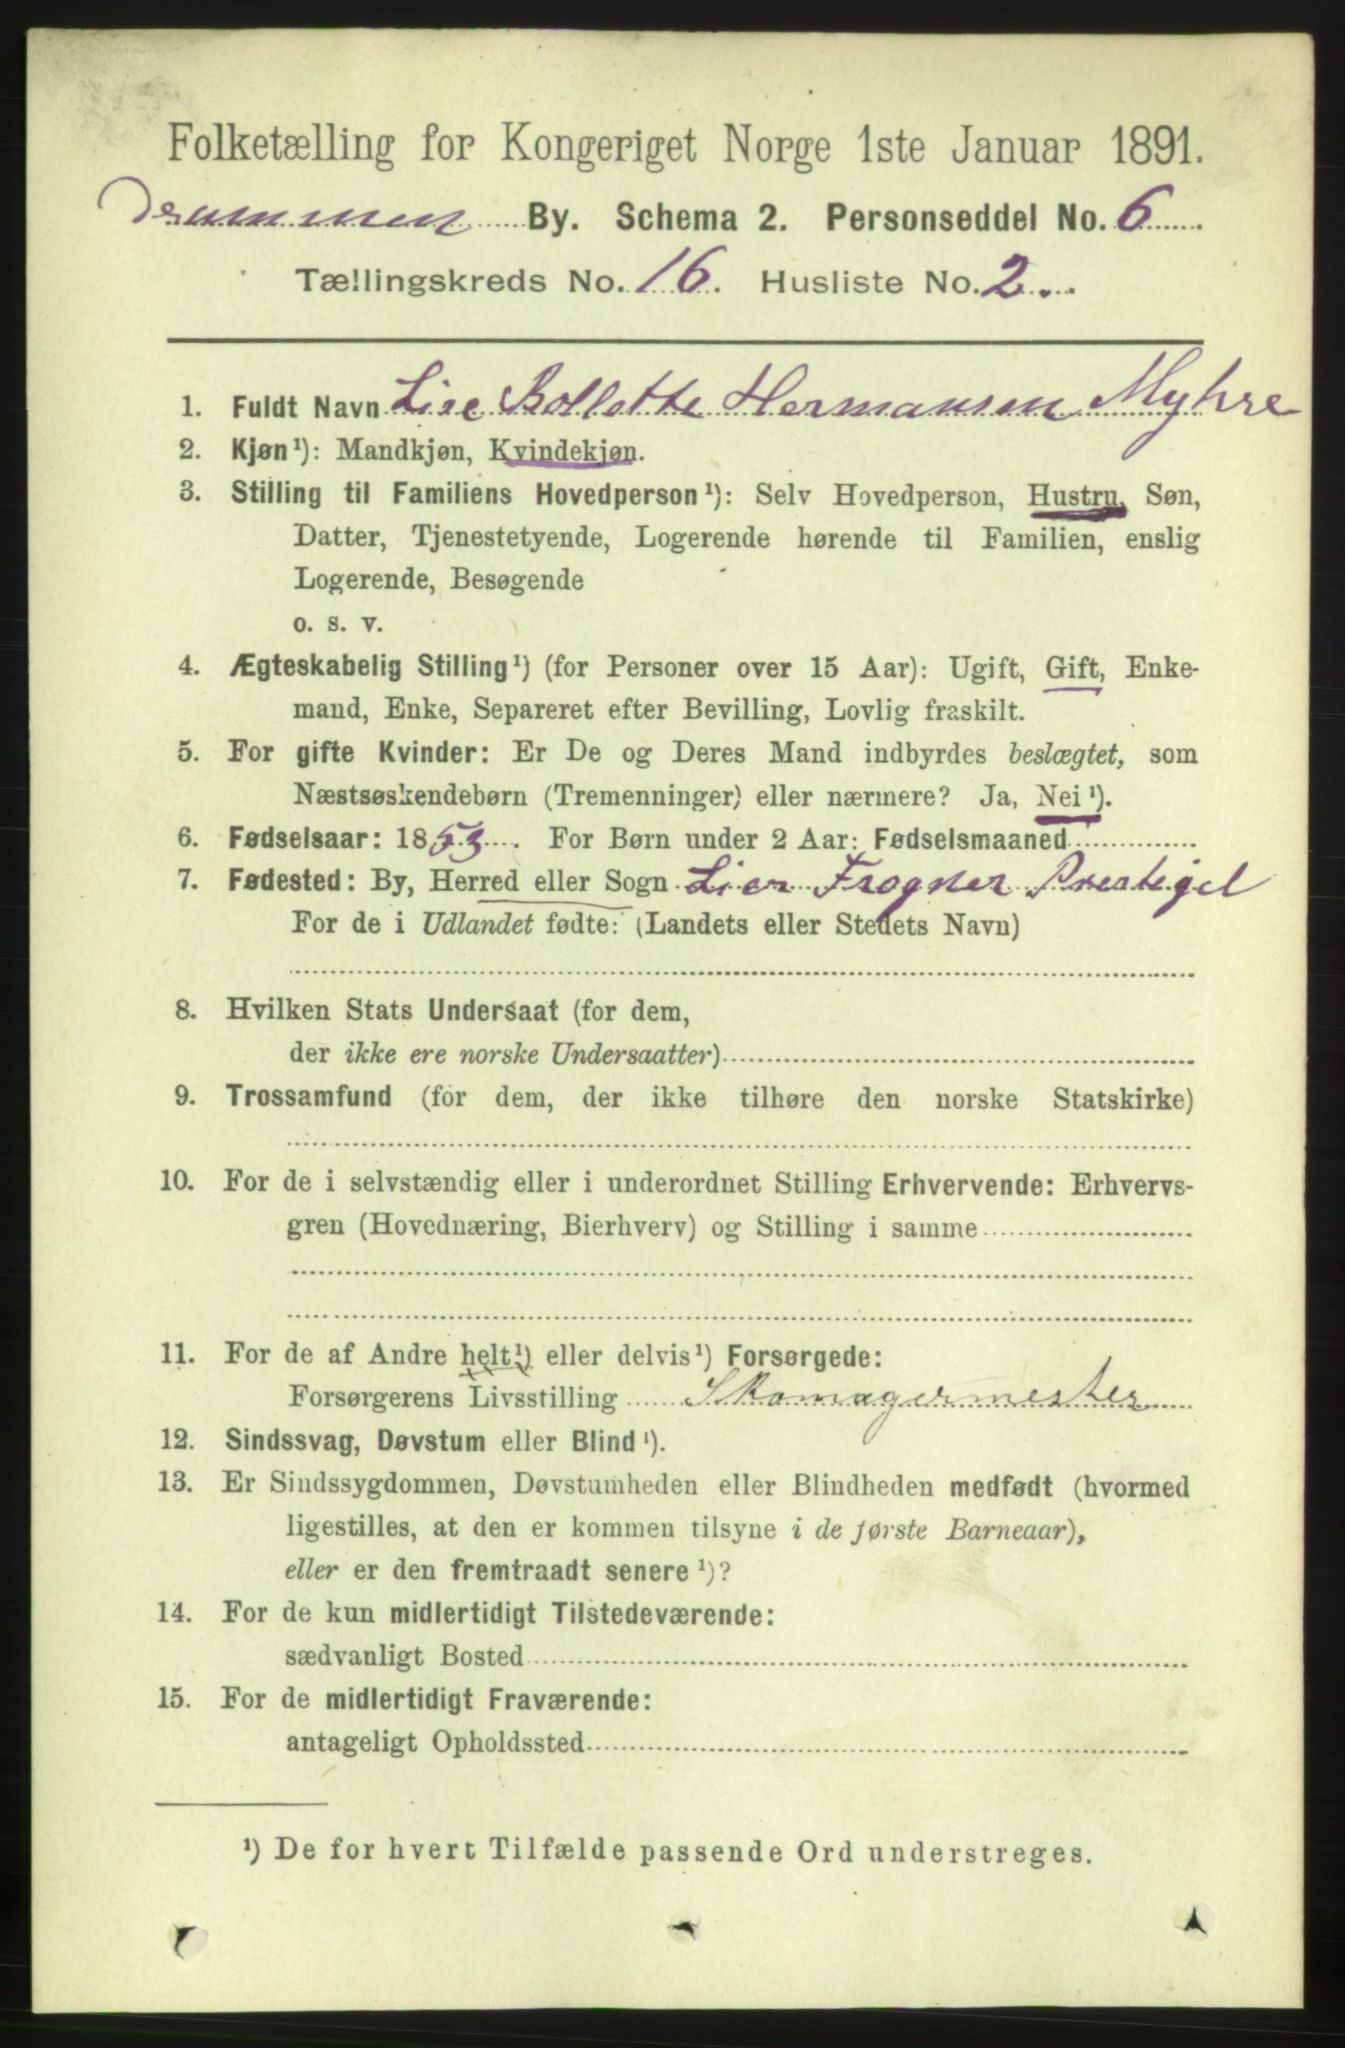 Folketælling for Kongeriget Norge 1ste Januar 1891.
Drammen By. Schema 2. Personseddel No. 6
Tællingskreds No. 16. Husliste No. 2.
1. Fuldt Navn Lise Bollette Hermansen Myhre
2. Kjøn¹): Mandkjøn, Kvindekjøn.
3. Stilling til Familiens Hovedperson¹): Selv Hovedperson, Hustru, Søn,
Datter, Tjenestetyende, Logerende hørende til Familien, enslig
Logerende, Besøgende
o. s. v.
4. Ægteskabelig Stilling¹) (for Personer over 15 Aar): Ugift, Gift, Enke-
mand, Enke, Separeret efter Bevilling, Lovlig fraskilt.
5. For gifte Kvinder: Er De og Deres Mand indbyrdes beslægtet, som
Næstsøskendebørn (Tremenninger) eller nærmere? Ja, Nei¹).
6. Fødselsaar: 1853. For Børn under 2 Aar: Fødselsmaaned
7. Fødested: By, Herred eller Sogn Lier Frogner Prestegel
For de i Udlandet fødte: (Landets eller Stedets Navn)
8. Hvilken Stats Undersaat (for dem,
der ikke ere norske Undersaatter)
9. Trossamfund (for dem, der ikke tilhøre den norske Statskirke)
10. For de i selvstændig eller i underordnet Stilling Erhvervende: Erhvervs-
gren (Hovednæring, Bierhverv) og Stilling i samme
11. For de af Andre helt¹) eller delvis¹) Forsørgede:
Forsørgerens Livsstilling Skomagermester
12. Sindssvag, Døvstum eller Blind¹).
13. Er Sindssygdommen, Døvstumheden eller Blindheden medfødt (hvormed
ligestilles, at den er kommen tilsyne i de første Barneaar),
eller er den fremtraadt senere¹)?
14. For de kun midlertidigt Tilstedeværende:
sædvanligt Bosted
15. For de midlertidigt Fraværende:
antageligt Opholdssted
¹) De for hvert Tilfælde passende Ord understreges.